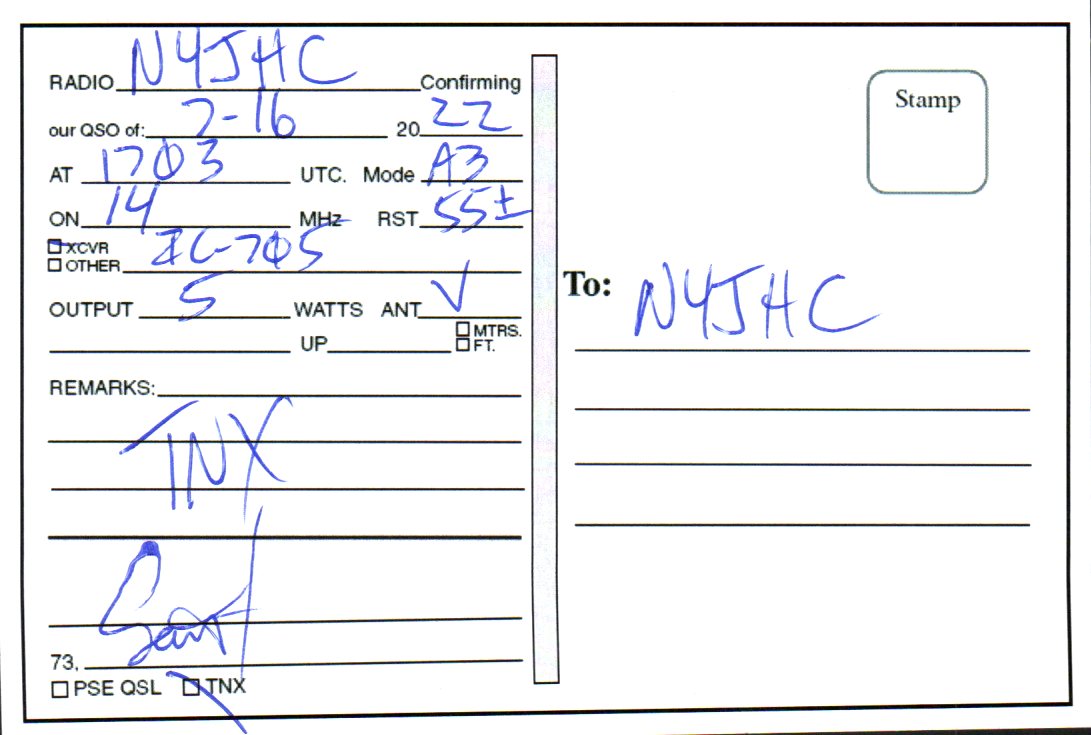 RADIO N4JHC Confirming
our QSO of: 7-16 20 22
AT 1703 UTC. Mode A3
ON 14 MHz RST 55±
XCVR IC-705
OTHER
OUTPUT 5 WATTS ANT √
UP MTRS.
FT.
REMARKS:
TNX
73,
PSE QSL TNX
Stamp
To: N4JHC